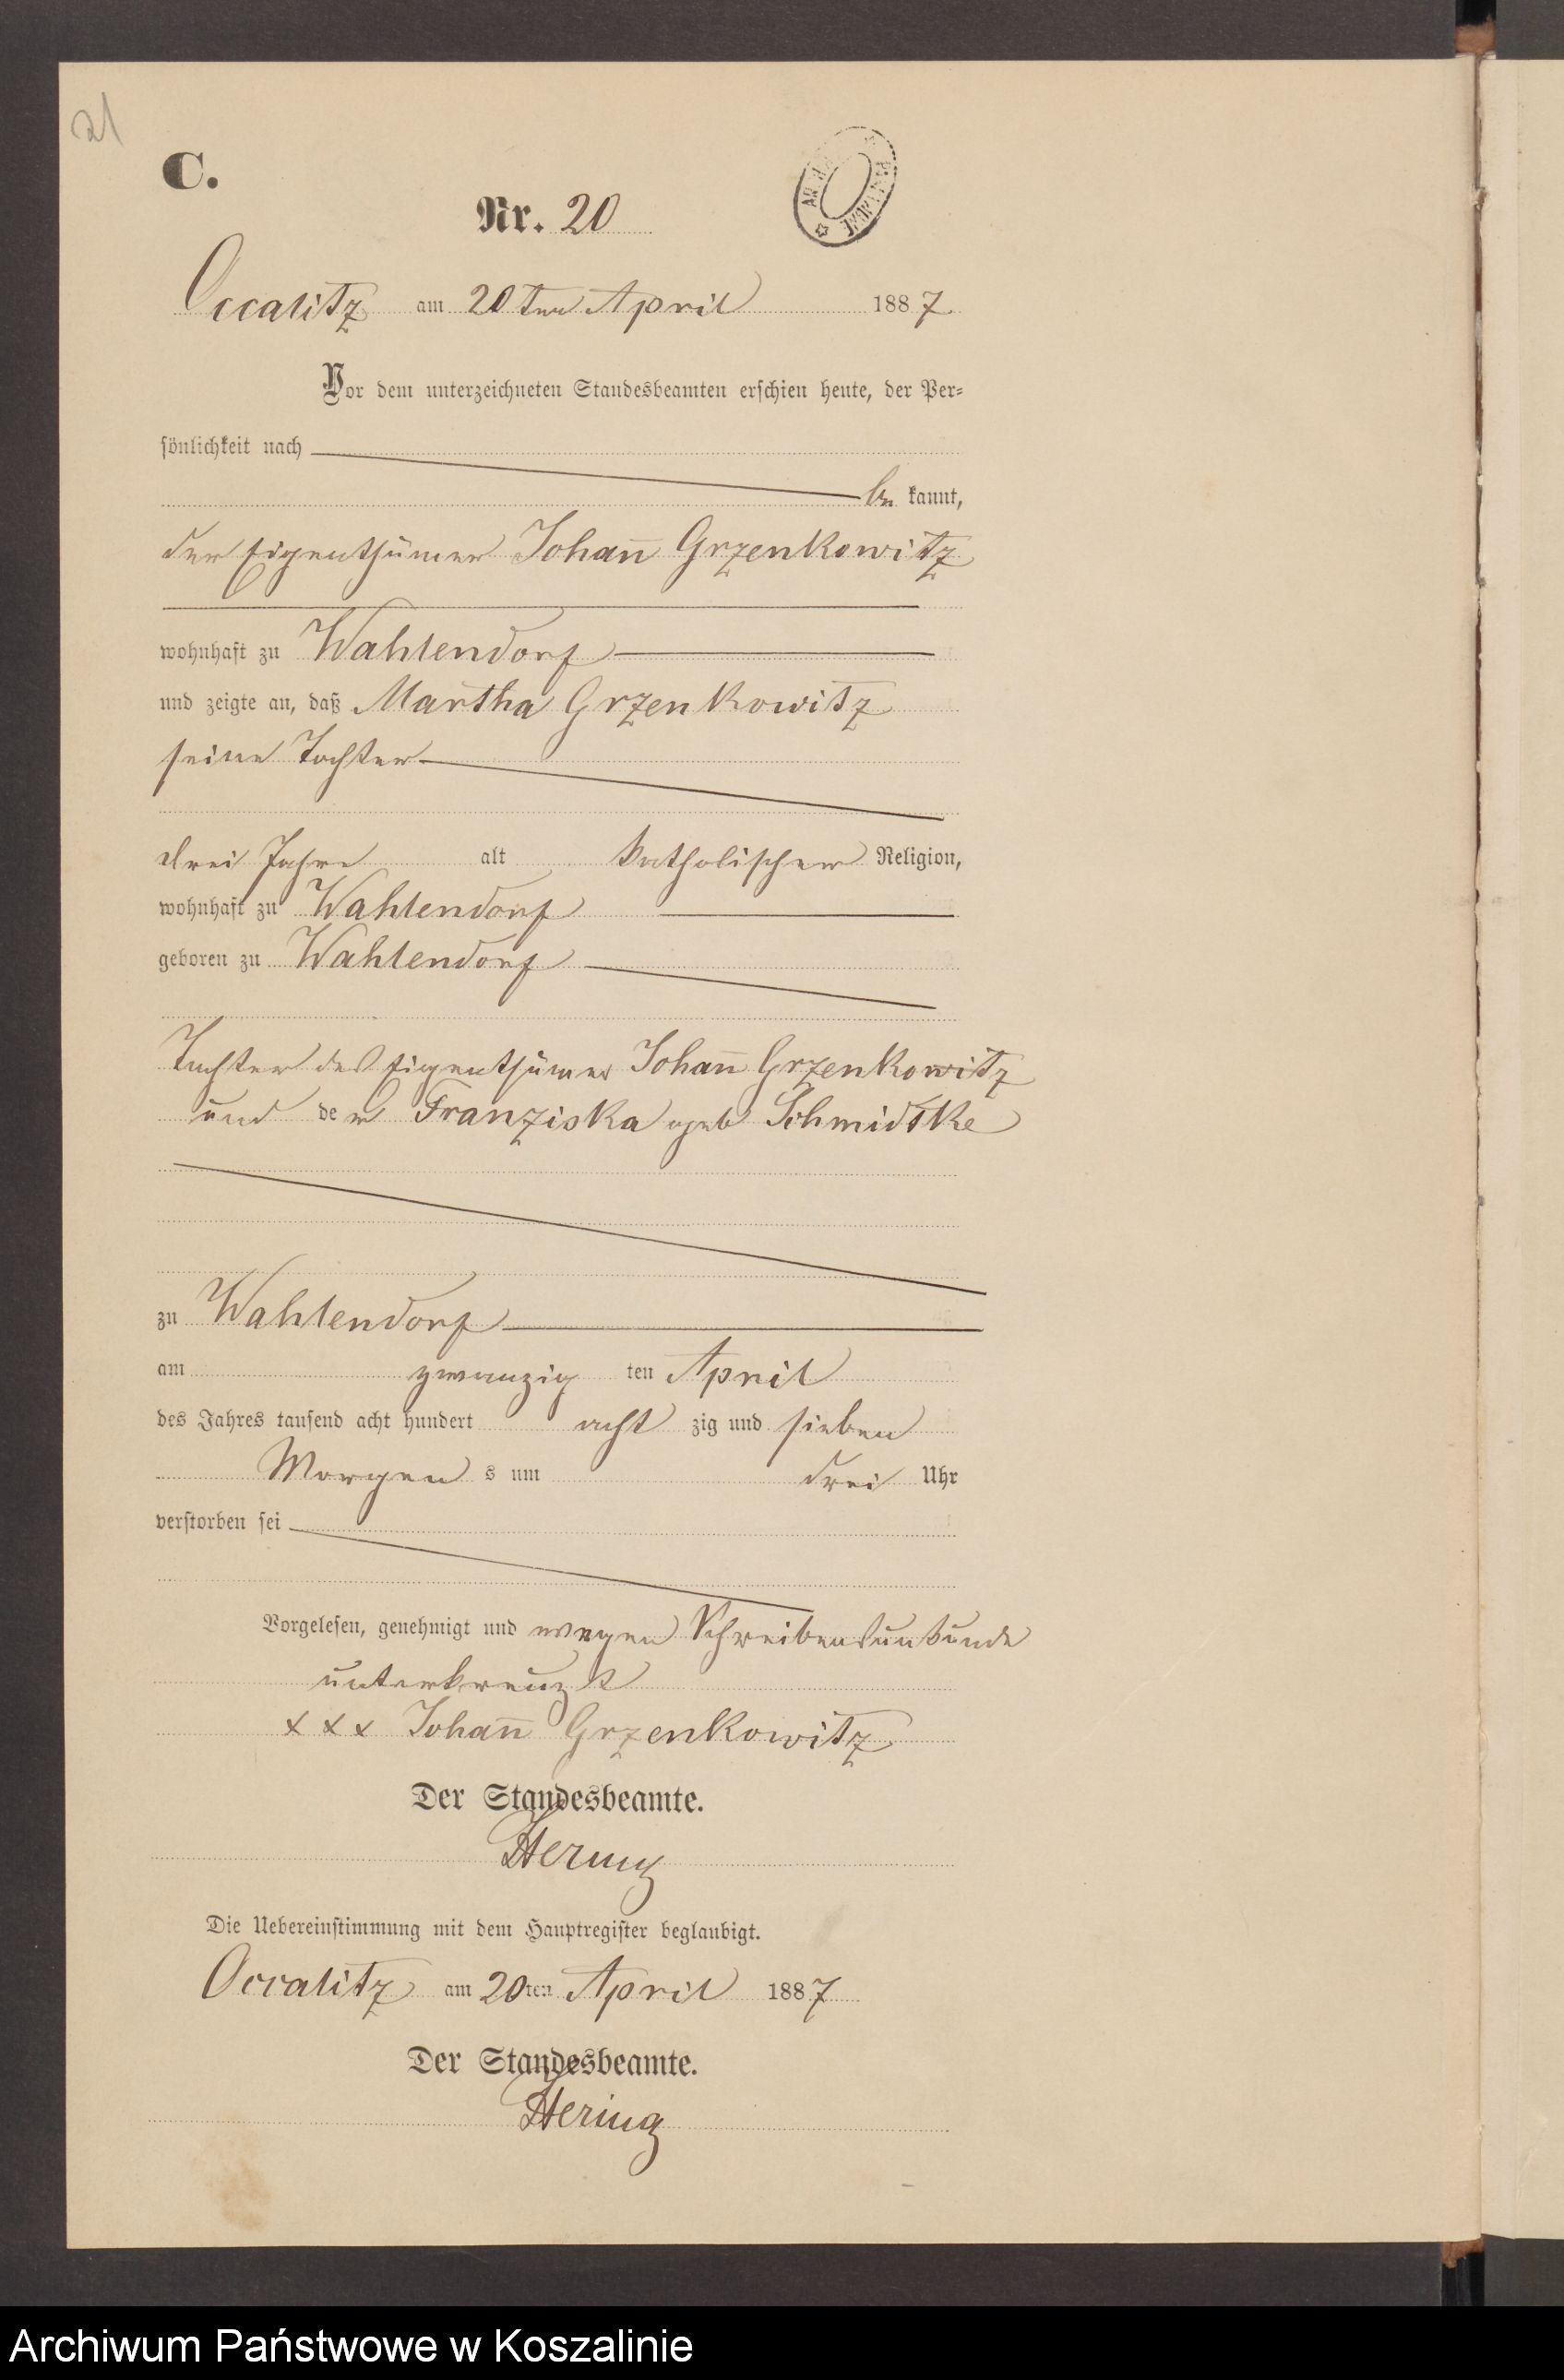 21
C.
Nr. 20
Occalitz am 20ten April 1887
Vor dem unterzeichneten Standesbeamten erschien heute, der Per=
sönlichkeit nach
be kannt,
der Eigenthümer Johan̄ Grzenkowitz
wohnhaft zu Wahlendorf
und zeigte an, daß Martha Grzenkowitz
seine Tochter
drei Jahre alt katholischer Religion,
wohnhaft zu Wahlendorf
geboren zu Wahlendorf
Tochter des Eigenthümer Johan̄ Grzenkowitz
und der Franziska geb Schmidtke
zu Wahlendorf
am zwanzig ten April
des Jahres tausend acht hundert acht zig und sieben
Morgen s um drei Uhr
verstorben sei
Vorgelesen, genehmigt und wegen Schreibensunkunde
unterkreuzt
x x x Johan̄ Grzenkowitz
Der Standesbeamte.
Hering
Die Uebereinstimmung mit dem Hauptregister beglaubigt.
Occalitz am 20ten April 1887
Der Standesbeamte.
Hering
Archiwum Państwowe w Koszalinie